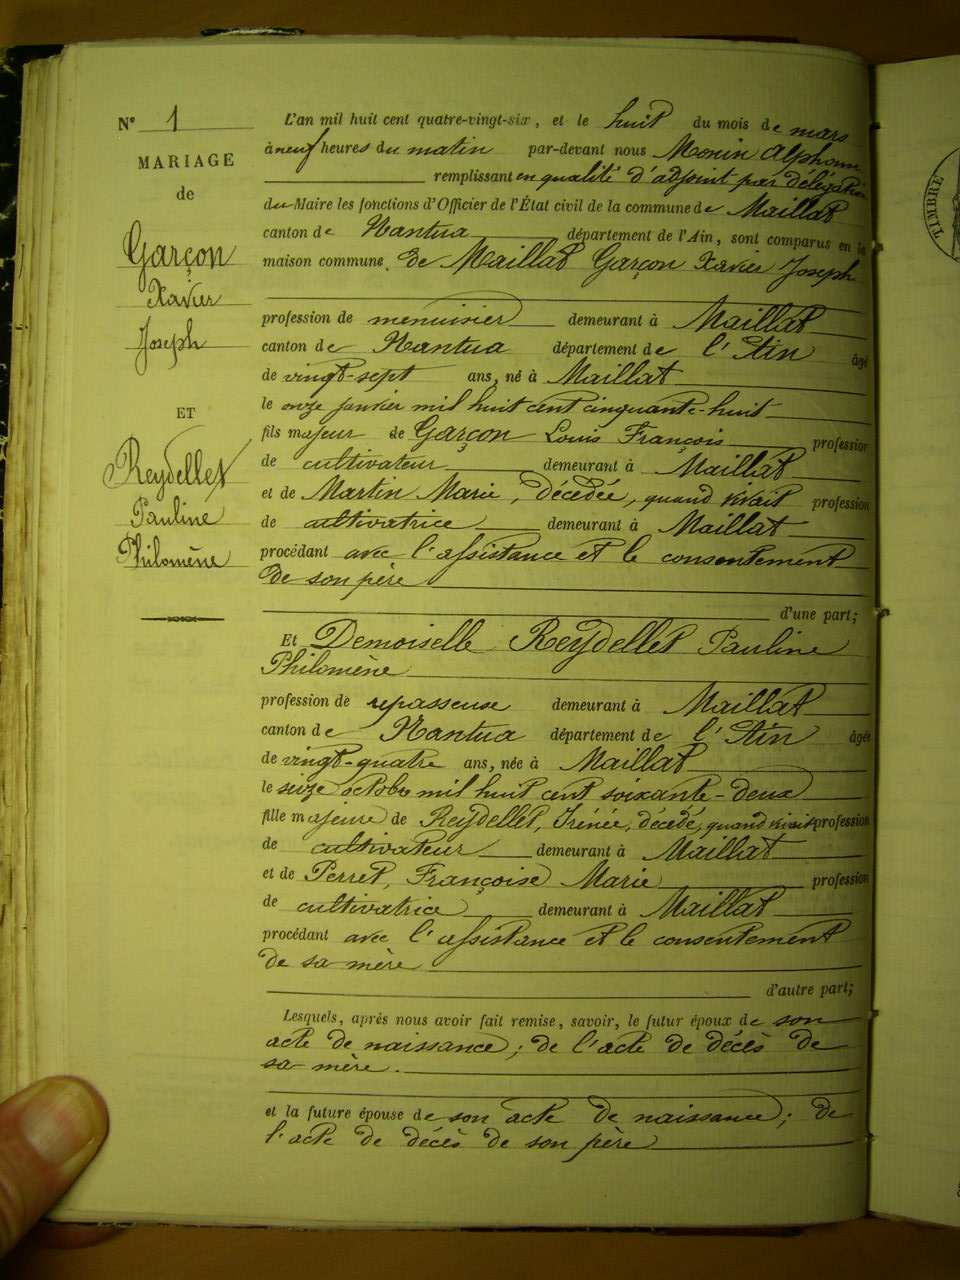 N° 1
MARIAGE
de
Garçon
Xavier
Joseph
ET
Reydellet
Pauline
Philomène
L'an mil huit cent quatre-vingt-six, et le huit du mois de mars
à neuf heures du matin par-devant nous Monin Alphonse
remplissant en qualité d'adjoint par délégation
du Maire les fonctions d'Officier de l'État civil de la commune de Maillat
canton de Nantua département de l'Ain, sont comparus en la
maison commune de Maillat Garçon Xavier Joseph
profession de menuisier demeurant à Maillat
canton de Nantua département de l'Ain âgé
de vingt-sept ans, né à Maillat
le onze janvier mil huit cent cinquante-huit
fils majeur de Garçon Louis François profession
de cultivateur demeurant à Maillat
et de Martin Marie, décédée, quand vivait profession
de cultivatrice demeurant à Maillat
procédant avec l'assistance et le consentement
de son père
d'une part;
Et Demoiselle Reydellet Pauline
Philomène
profession de repasseuse demeurant à Maillat
canton de Nantua département de l'Ain âgée
de vingt-quatre ans, née à Maillat
le seize octobre mil huit cent soixante-deux
fille majeure de Reydellet, Irénée, décédé, quand vivait profession
de cultivateur demeurant à Maillat
et de Perret, Françoise Marie profession
de cultivatrice demeurant à Maillat
procédant avec l'assistance et le consentement
de sa mère
d'autre part;
Lesquels, après nous avoir fait remise, savoir, le futur époux de son
acte de naissance; de l'acte de décès de
sa mère.
et la future épouse de son acte de naissance; de
l'acte de décès de son père
TIMBRE